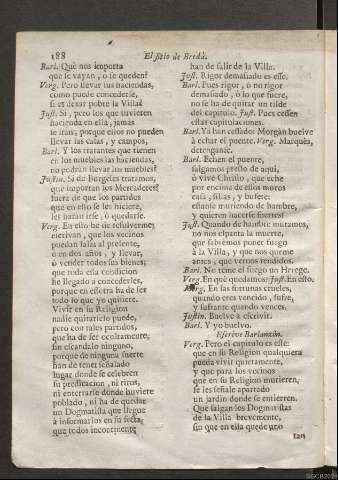 188
El Sitio de Bredá.
Barl. Què nos importa
que se vayan, ò se queden?
Verg. Pero llevar sus haciendas,
como puede concederse,
si es dexar pobre la Villa?
Just. Si, pero los que tuvieren
hacienda en ella, jamás
se iràn, porque ellos no pueden
llevar las casas, y campos,
Barl. Y los tratantes que tienen
en los muebles las haciendas,
no podràn llevar los muebles?
Justin. Si de Burgeses tratamos,
què importan los Mercaderes?
fuera de que los partidos
que en ello se les hiciere,
les haràn irse, ò quedarse.
Verg. En esto he de resolverme;
escrivan, que los vecinos
puedan salas al presente,
ò en dos años, y llevar,
ò vender todos sus bienes;
que toda esta condicion
he llegado à concederles,
porque en estotra ha de ser
todo lo que yo quisiere.
Vivir en su Religion
nadie quitarselo puede,
pero con tales partidos,
que ha de ser ocultamente;
sin escandalo ninguno,
porque de ninguna suerte
han de tener señalado
lugar donde se celebren
su predicacion, ni ritos,
ni enterrarse donde huviere
poblado, ni ha de quedar
un Dogmatista que llegue
à informarlos en su secta,
que todos incontinente
han de salir de la Villa.
Just. Rigor demasiado es esse.
Barl. Pues rigor, ò no rigor
demasiado, ò lo que fuere,
no se ha de quitar un tilde
del capitulo. Just. Pues cessen
essas capitulaciones.
Barl. Ya han cessado: Morgàn buelve
à echar el puente. Verg. Marquès,
detengase.
Barl. Echen el puente,
salgamos presto de aqui,
ò vive Christo, que eche
por encima de essos muros
casa, sillas, y bufete:
estanse muriendo de hambre,
y quieren hacerse fuertes?
Just. Quando de hambre muramos,
no nos espanta la muerte,
que sabrèmos poner fuego
à la Villa, y que nos queme
antes, que vernos rendidos.
Barl. No teme el fuego un Herege.
Verg. En què quedamos? Just. En esto.
Morg. En las fortunas crueles,
quando eres vencido, sufre,
y sufrante quando vences.
Justin. Buelve à escrivir.
Barl. Y yo buelvo.
Escrive Barlanzòn.
Verg. Pero el capitulo es esse:
que en su Religion qualquiera
pueda vivir quietamente,
y que para los vecinos
que en su Religion murieren,
se les señale apartado
un jardin donde se entierren.
Que salgan los Dogmatistas
de la Villa brevemente,
sin que en ella quede uno